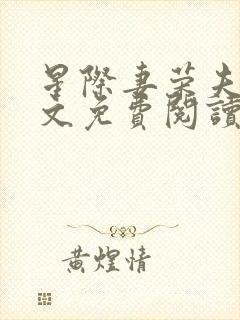 星際妻榮夫
文免費閱讀
黃煌情